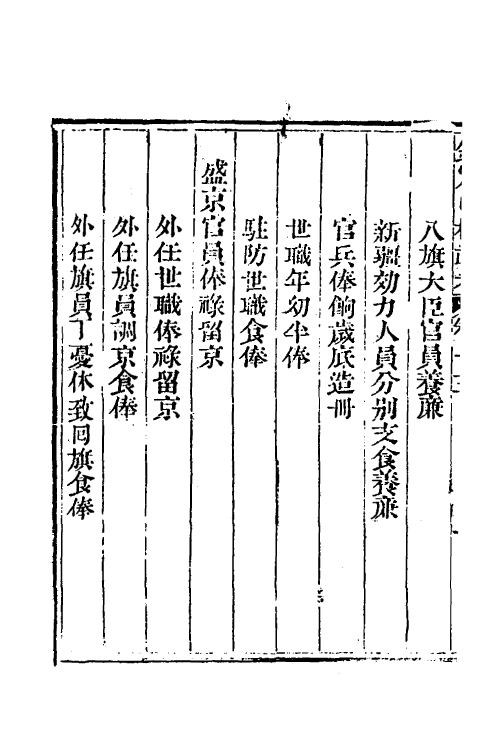 八旗大臣官員養廉
新疆効力人員分别支食養廉
官兵俸餉歲底造册
世職年幼半俸
駐防世職食俸
盛京官員俸祿留京
外任世職俸祿留京
外任旗員調京食俸
外任旗員丁憂休致回旗食俸